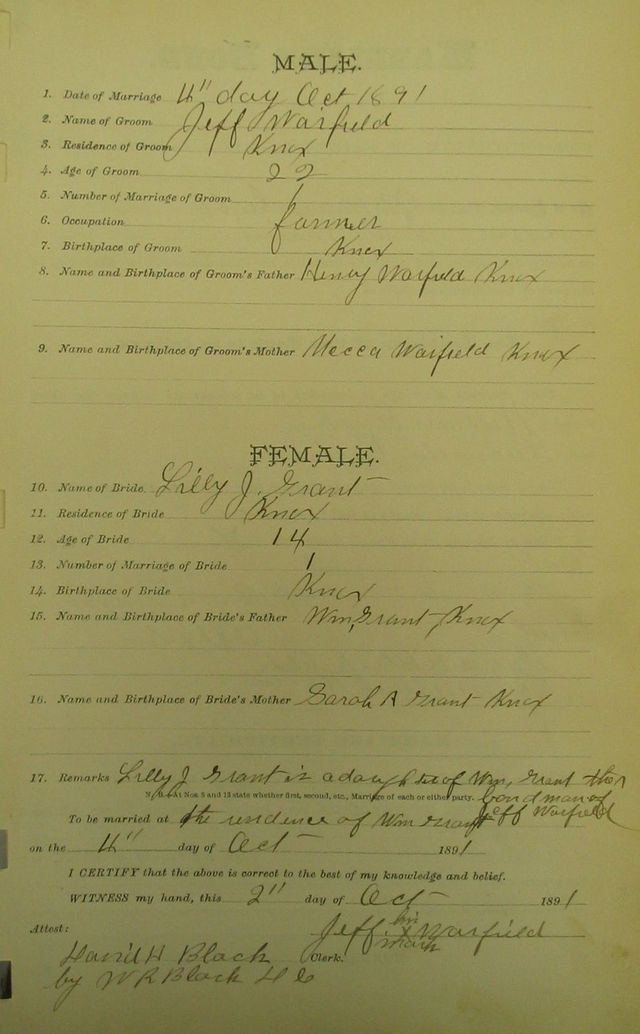 MALE.
1. Date of Marriage 4" day Oct 1891
2. Name of Groom Jeff Warfield
3. Residence of Groom Knox
4. Age of Groom 22
5. Number of Marriage of Groom 1
6. Occupation farmer
7. Birthplace of Groom Knox
8. Name and Birthplace of Groom's Father Henry Warfield Knox
9. Name and Birthplace of Groom's Mother Mecca Warfield Knox
FEMALE.
10. Name of Bride Lilly J. Grant
11. Residence of Bride Knox
12. Age of Bride 14
13. Number of Marriage of Bride 1
14. Birthplace of Bride Knox
15. Name and Birthplace of Bride's Father Wm, Grant, Knox
16. Name and Birthplace of Bride's Mother Sarah A Grant Knox
17. Remarks Lilly J Grant is a daughter of Wm, Grant the
N. B.—At Nos. 5 and 13 state whether first, second, etc., Marriage of each or either party. bondman of
To be married at the residence of Wm Grant Jeff Warfield
on the 4" day of Oct 1891
I CERTIFY that the above is correct to the best of my knowledge and belief.
WITNESS my hand, this 2" day of Oct 1891
his
Attest: Jeff X Warfield
mark
David H Black Clerk.
by W R Black